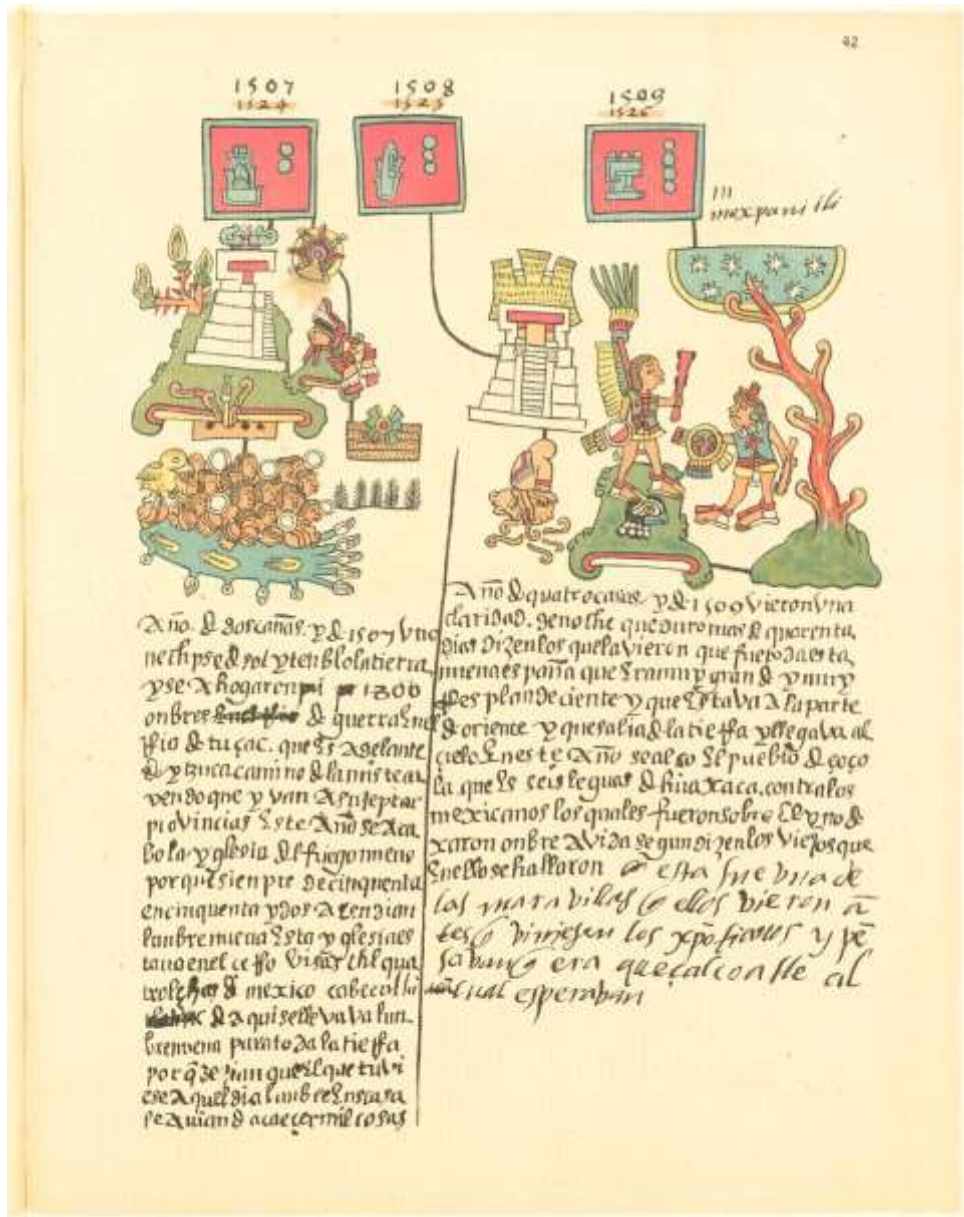 42
1507
1524
1508
1525
1509
1526
m
mexpanitli
Año. de dos cañas. y de 1507 vno
nechpse de sol y tenblo la tierra
y se ahogaron 1800
onbres de guerra en el
rrio de tuçac. que es adelante
de ytzuca camino de la misteca
yendo que yvan a sujeptar
provincias este año se aca
bo la yglesia del fuego nuevo
porque sienpre de cinquenta
en cinquenta y dos açendian
lanbre nueva esta yglesia es
tava en el cerro visachtl quatro
leguas de mexico cabe
de aqui se llevava lun
bre nueva para toda la tierra
por q̃ dezian que el que tuvi
ese aquel dia lunbre en su casa
le avian de acaeçer mil cosas
Año de quatro casas. y de 1509 vieron vna
claridad. de noche que duro mas de quarenta
dias dizen los que la vieron que fue toda esta
nueva españa que era muy grande y muy
rres plandeciente y que estava a la parte
de oriente y que salia de la tierra y llegava al
cielo en este año se alço el pueblo de çoço
la que es seis leguas de huaxaca. contra los
mexicanos los quales fueron sobre el y no de
xaron onbre a vida segun dizen los viejos que
en ello se hallaron esta fue vna de
las maravillas q̃ ellos vieron ā
tes q̃ viniesen los xp̃ianos y pē
savan q̃ era queçalcoatle al
cual esperaban